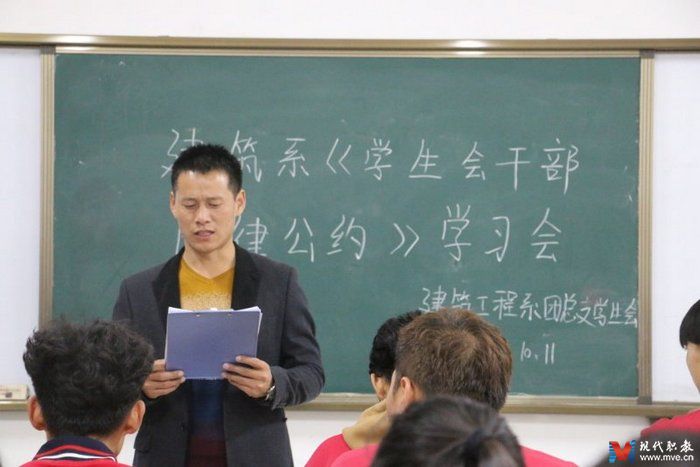 建筑系《学生会干部
律公约》学习会
建筑工程系团总支学生会
10.11
现代职教
www.mve.cn